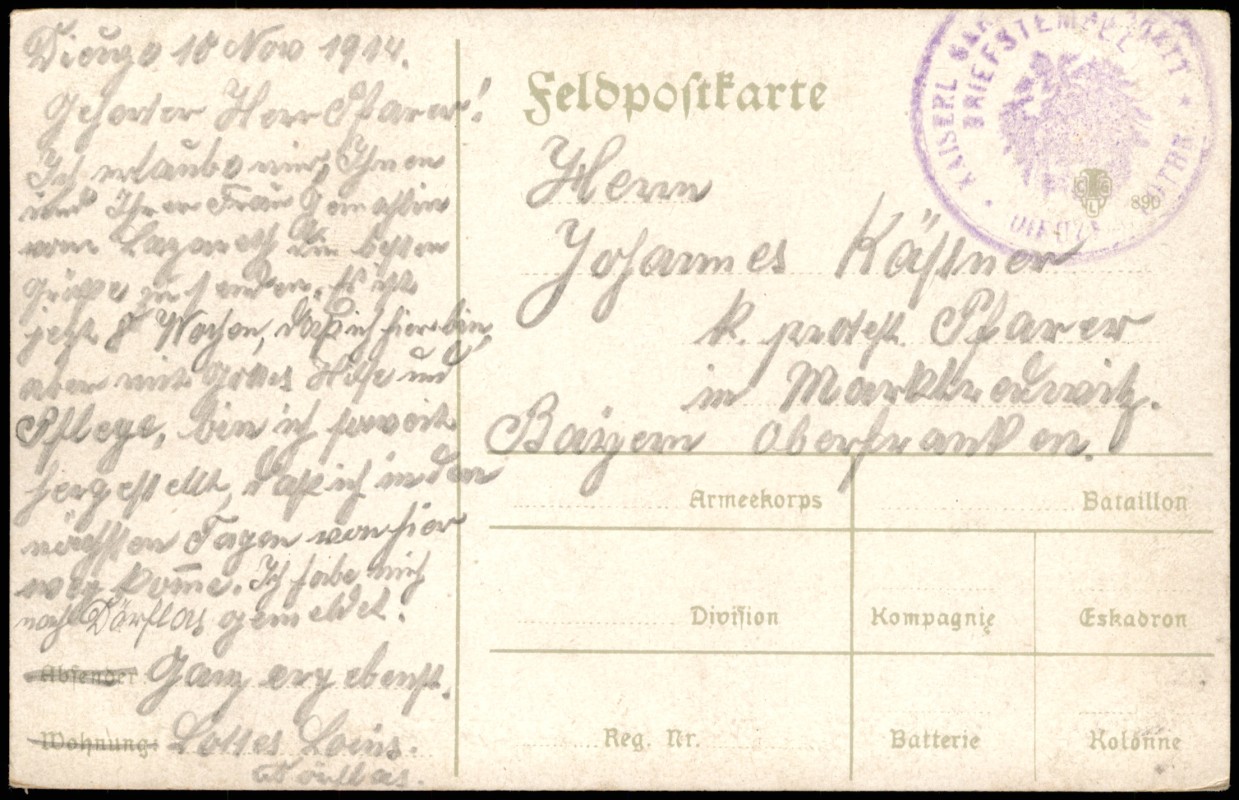 Dieuze 10 Nov 1914.
Geherter Herr Pfarer!
Ich erlaube mir, Ihnen
und Ihrer Frau Gemahlin
vom Lazareth die besten
Grüße zu senden. Es ist
jetzt 8 Wochen, daß ich hier bin,
aber mit Gottes Hilfe und
Pflege, bin ich soweit
hergestellt, daß ich in den
nächsten Tagen von hier
weg kom̅e. Ich habe mich
nach Dörflas gemeldet.
Absender Ganz ergebenst.
Wohnung: Lottes Louis.
Dörflas.
Feldpostkarte
KAISERL
BRIEFSTEMPEL
DIEUZE
C G L
890
Herrn
Johannes Kästner
k. protest. Pfarer
in Marktredwitz.
Bayern Oberfranken.
Armeekorps
Bataillon
Division
Kompagnie
Eskadron
Reg. Nr.
Batterie
Kolonne